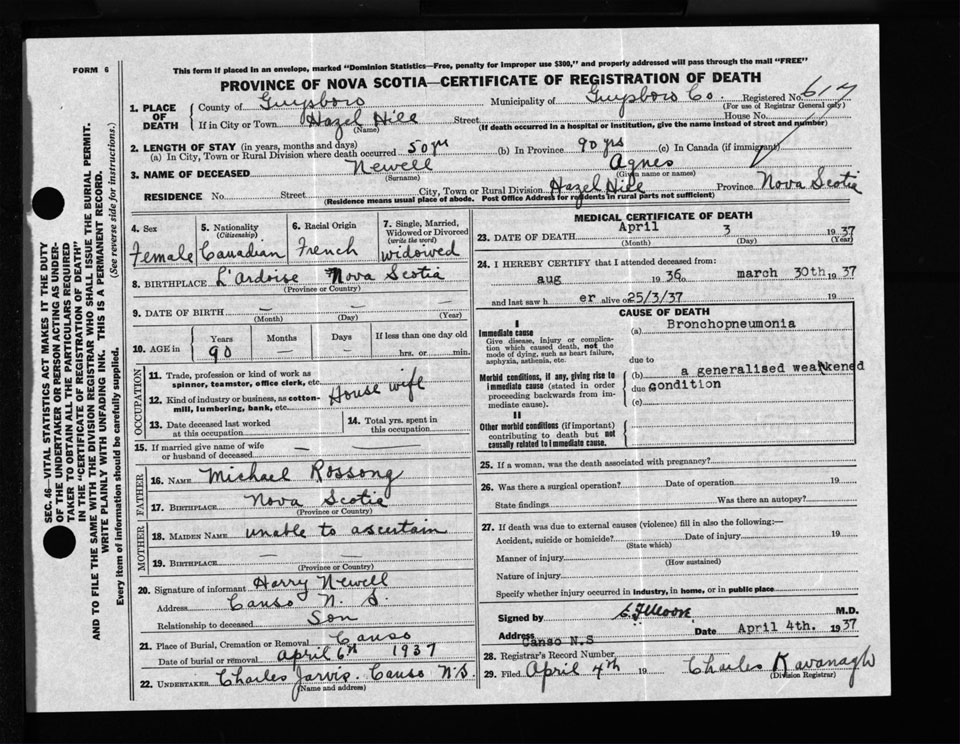 FORM 6
This form if placed in an envelope, marked "Dominion Statistics—Free, penalty for improper use $300," and properly addressed will pass through the mail "FREE"
PROVINCE OF NOVA SCOTIA—CERTIFICATE OF REGISTRATION OF DEATH
SEC. 46—VITAL STATISTICS ACT MAKES IT THE DUTY
OF THE UNDERTAKER OR PERSON ACTING AS UNDER-
TAKER TO OBTAIN ALL THE PARTICULARS REQUIRED
IN THE "CERTIFICATE OF REGISTRATION OF DEATH"
AND TO FILE THE SAME WITH THE DIVISION REGISTRAR WHO SHALL ISSUE THE BURIAL PERMIT.
WRITE PLAINLY WITH UNFADING INK. THIS IS A PERMANENT RECORD.
Every item of information should be carefully supplied. (See reverse side for instructions.)
1. PLACE OF DEATH
County of Guysboro Municipality of Guysboro Co. Registered No. 617
(For use of Registrar General only)
If in City or Town Hazel Hill Street House No.
(Name) (If death occurred in a hospital or institution, give the name instead of street and number)
2. LENGTH OF STAY (in years, months and days)
(a) In City, Town or Rural Division where death occurred 50 yrs (b) In Province 90 yrs (c) In Canada (if immigrant)
3. NAME OF DECEASED Newell Agnes
(Surname) (Given name or names)
RESIDENCE No. Street City, Town or Rural Division Hazel Hill Province Nova Scotia
(Residence means usual place of abode. Post Office Address for residents in rural parts not sufficient)
4. Sex 5. Nationality (Citizenship) 6. Racial Origin 7. Single, Married, Widowed or Divorced (write the word)
Female Canadian French widowed
8. BIRTHPLACE L'Ardoise Nova Scotia
(Province or Country)
9. DATE OF BIRTH — — —
(Month) (Day) (Year)
10. AGE in Years Months Days If less than one day old
90 — — hrs. or min.
OCCUPATION
11. Trade, profession or kind of work as
spinner, teamster, office clerk, etc.
House wife
12. Kind of industry or business, as cotton-
mill, lumbering, bank, etc.
13. Date deceased last worked
at this occupation
14. Total yrs. spent in
this occupation
15. If married give name of wife
or husband of deceased —
FATHER
16. NAME Michael Rossong
17. BIRTHPLACE Nova Scotia
(Province or Country)
MOTHER
18. MAIDEN NAME unable to ascertain
19. BIRTHPLACE — —
(Province or Country)
20. Signature of informant Harry Newell
Address Canso N. S.
Relationship to deceased Son
21. Place of Burial, Cremation or Removal Canso
Date of burial or removal April 6th 1937
22. UNDERTAKER Charles Jarvis. Canso N.S.
(Name and address)
MEDICAL CERTIFICATE OF DEATH
23. DATE OF DEATH April 3 1937
(Month) (Day) (Year)
24. I HEREBY CERTIFY that I attended deceased from:
aug 1936 march 30th 1937
and last saw h er alive on 25/3/37 19
CAUSE OF DEATH
I
Immediate cause
Give disease, injury or complica-
tion which caused death, not the
mode of dying, such as heart failure,
asphyxia, asthenia, etc.
(a) Bronchopneumonia
due to
Morbid conditions, if any, giving rise to
immediate cause (stated in order
proceeding backwards from im-
mediate cause).
(b) a generalised weakened
due condition
(c)
II
Other morbid conditions (if important)
contributing to death but not
causally related to immediate cause.
25. If a woman, was the death associated with pregnancy?
26. Was there a surgical operation? Date of operation 19
State findings Was there an autopsy?
27. If death was due to external causes (violence) fill in also the following:—
Accident, suicide or homicide? Date of injury 19
(State which)
Manner of injury
(How sustained)
Nature of injury
Specify whether injury occurred in industry, in home, or in public place
Signed by Moore M.D.
Address Canso N.S Date April 4th. 1937
28. Registrar's Record Number
29. Filed April 4th 19 Charles Kavanagh
(Division Registrar)